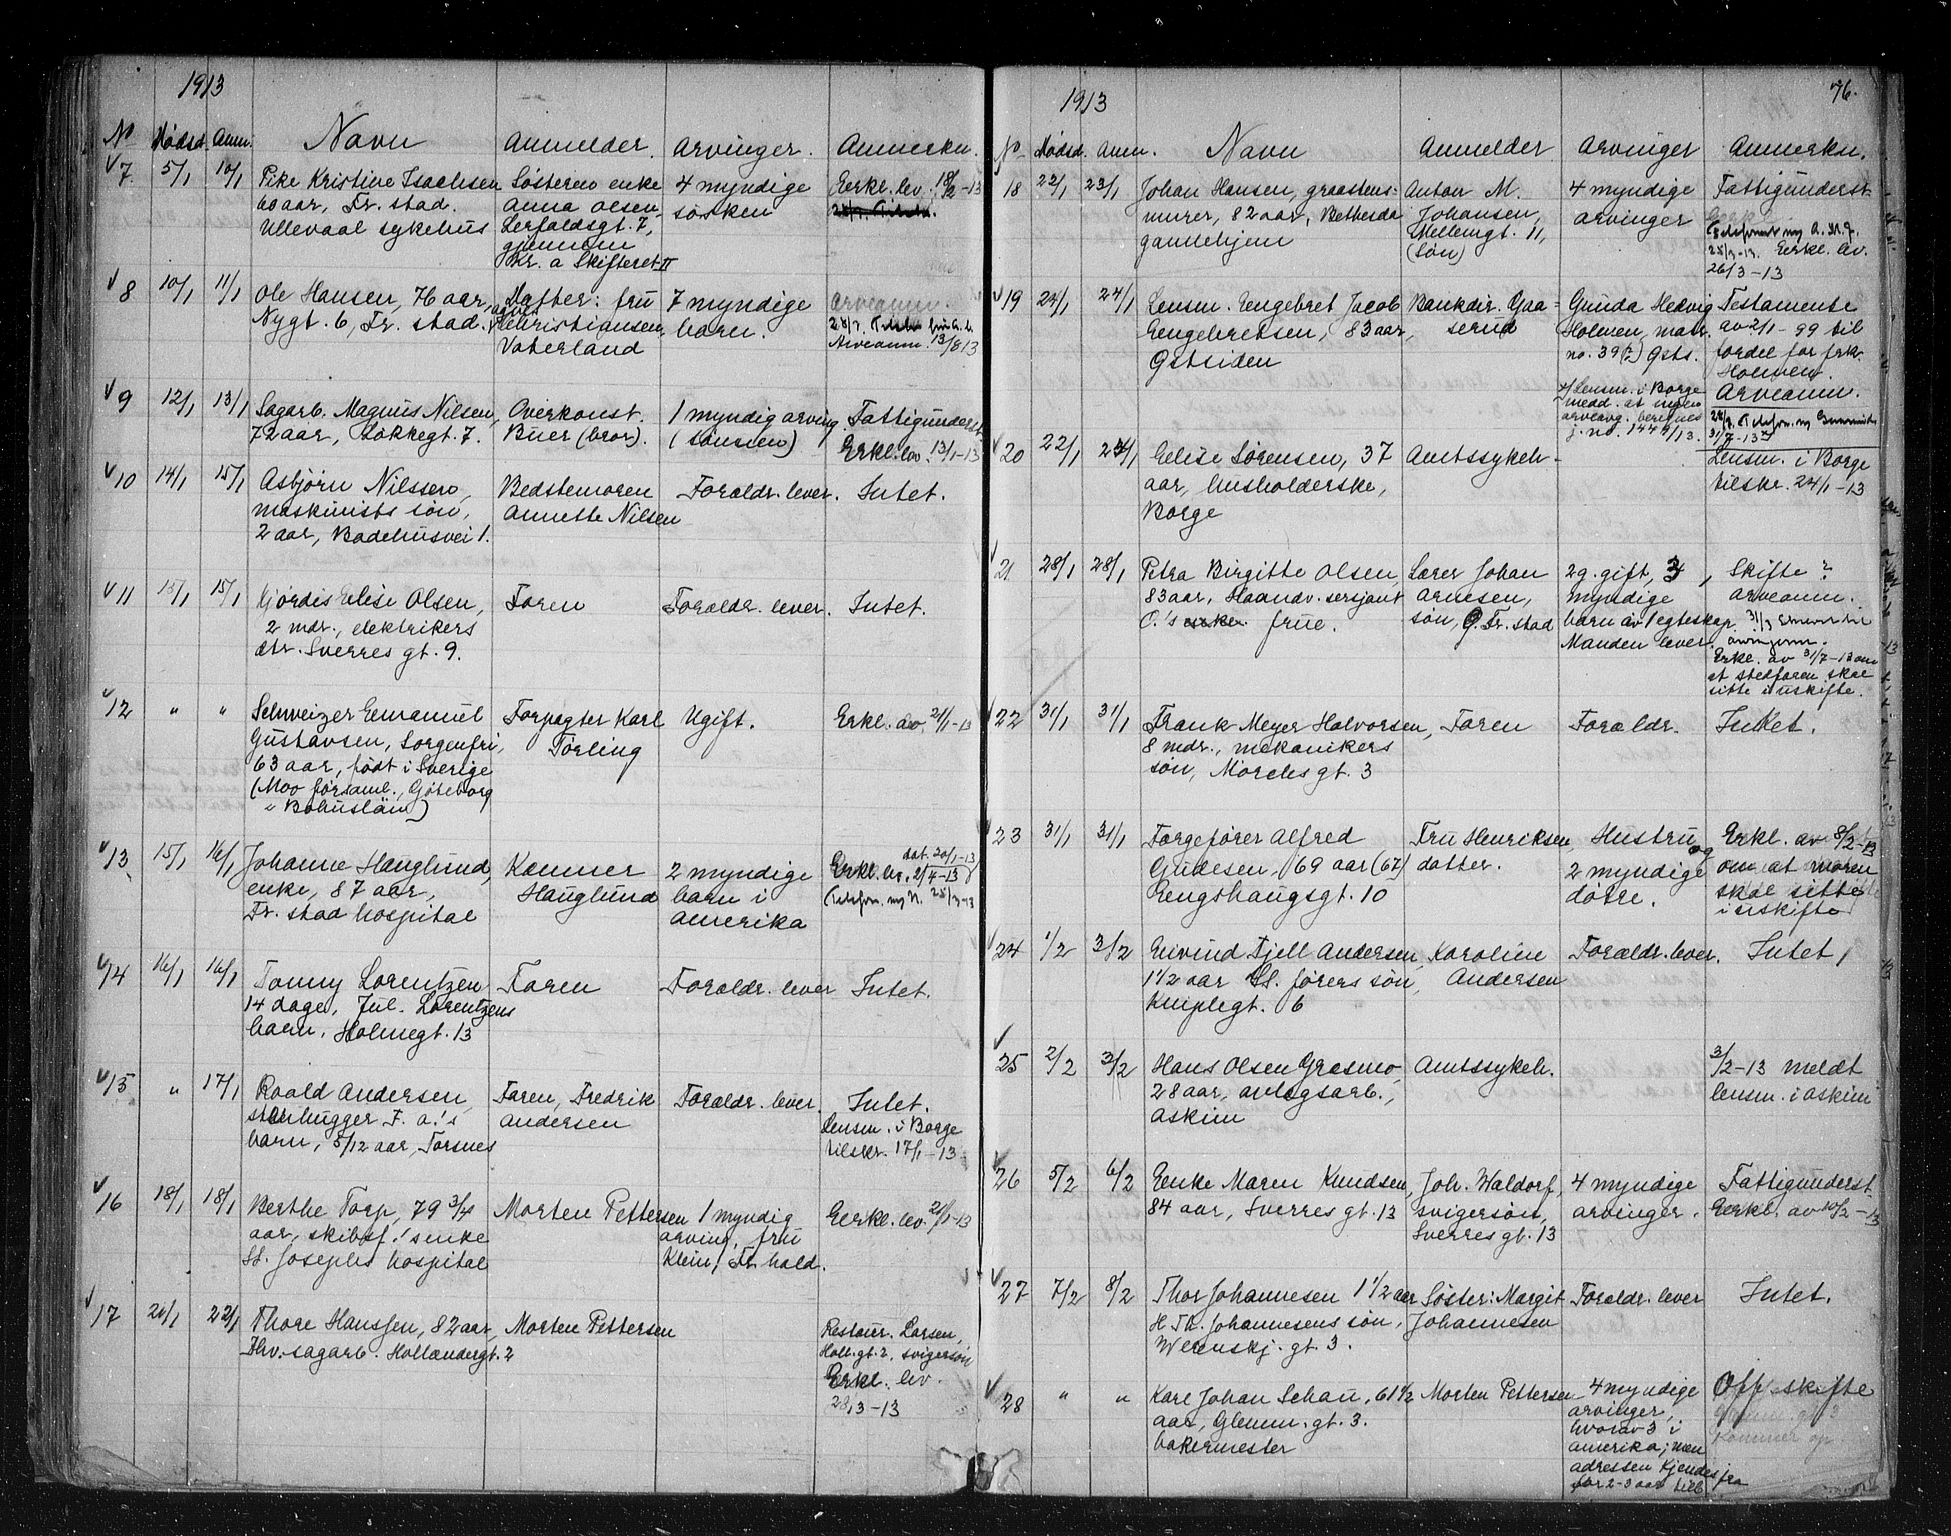 1913
No Dødsd. Anm. Navn Anmelder. Arvinger. Anmerkn.
7 5/1 10/1 Pike Kristine Isachsen Søsteren enke 4 myndige Erkl. lev. 18/2-13
60 aar, Fr. stad. Anna Olsen søsken
Ullevaal sykehus Lerfaldsgt. 7,
gjennem
Kr. a Skifteret II
8 10/1 11/1 Ole Hansen, 76 aar, Datter: fru 7 myndige Arveanm.
Nygt. 6, Fr. stad. Kristiansen, barn.
Vaterland Arveanm. 13/8 13
9 12/1 13/1 Sagarb. Magnus Nilsen, Overkonst. 1 myndig arving. Fattigunderst.
72 aar, Løkkegt. 7. Buer (bror). (sønnen) Erkl. lev. 13/1-13
10 14/1 15/1 Asbjørn Nilssen, Bedstemoren Forældr. lever. Intet.
maskinists søn, Annette Nilsen
2 aar, Badehusvei 1.
11 15/1 15/1 Hjørdis Elise Olsen, Faren Forældr. lever. Intet.
2 mdr., elektrikers
dtr. Sverres gt. 9.
12 " " Schweizer Emanuel Forpagter Karl Ugift. Erkl. av 21/1-13
Gustavsen, Sorgenfri, Tørling
63 aar, født i Sverige
(Moo församl., Göteborg
i Bohuslän)
13 15/1 16/1 Johanne Hauglund, Kemner 2 myndige Erkl. lev. 2/4-13
dat. 20/1-13
enke, 87 aar, Hauglund barn i (Telefon. 25/3-13
Fr. stad hospital Amerika
14 16/1 16/1 Tommy Lorentzen Faren Forældr. lever Intet.
14 dage, Jul. Lorentzens
barn, Holmegt. 13
15 " 17/1 Roald Andersen, Faren, Fredrik Forældr. lever. Intet.
stenhugger F. A.'s Andersen Lensm. i Borge
barn, 5/12 aar, Torsnes tilskr. 17/1-13
16 18/1 18/1 Berthe Torp, 79 3/4 Morten Pettersen 1 myndig Erkl. lev. 21/1-13
aar, skibsf.'s enke arving, fru
St. Josephs hospital Klein, Fr. hald.
17 20/1 22/1 Thore Hanssen, 82 aar, Morten Pettersen Restaur. Larsen,
Fhv. sagarb. Hollændergt. 2 Holl. gt. 2, svigersøn
Erkl. lev.
28/3-13
1913 76.
No Dødsd. Anm. Navn Anmelder Arvinger Anmerkn.
18 22/1 23/1 Johan Hansen, graastens- Anton M. 4 myndige Fattigunderst.
murer, 82 aar, Bethesda Johansen, arvinger
gamlehjem Mellemgt. 11,
(søn) 25/3-13. Erkl. av.
26/3-13
19 24/1 24/1 Lensm. Engebret Jacob Bankdir. Gaa- Gunda Hedvig Testamente
Engebretsen, 83 aar, serud Holmen, matr. av 2/1-99 til
Østsiden no. 39(?) Østs. fordel for frk.
Holmen.
Lensm. i Borge Arveanm.
medd. at ingen
arveavg. beregnes
j. no. 1444/13. 31/7-13
20 22/1 24/1 Elise Sørensen, 37 Amtssykeh. Lensm. i Borge
aar, husholderske, tilskr. 24/1-13
Borge
21 28/1 28/1 Petra Birgitte Olsen, Lærer Johan 2 g. gift, 3, Skifte?
83 aar, Haandv. sersjant Arnesen, myndige Arveanm.
O.'s enke. frue. søn, Fr. stad barn av 1 egteskap. 31/3
Manden lever.
Erkl. av 31/7-13 om
at stedfaren skal
sitte i uskifte.
22 31/1 31/1 Frank Meyer Halvorsen, Faren Forældr. Intet.
8 mdr., mekanikers
søn, Mørchs gt. 3
23 31/1 31/1 Førgefører Alfred Fru Henriksen, Hustru og Erkl. av 8/2-13
Gudesen, 69 aar (67) datter. 2 myndige om at moren
Engshaugsgt. 10 døtre. skal sitte
i uskifte
24 1/2 3/2 Eivind Fjell Andersen, Karoline Forældr. lever. Intet,
1 1/2 aar SS. førers søn, Andersen
Kniplegt. 6
25 2/2 3/2 Hans Olsen Grasmo, Amtssykeh. 3/2-13 meldt
28 aar, anlegsarb., lensm. i Askim
Askim
26 5/2 6/2 Enke Maren Knudsen, Joh. Waldorf, 4 myndige Fattigunderst.
84 aar, Sverres gt. 13 svigersøn, arvinger. Erkl. av 10/2-13
Sverres gt. 13
27 7/2 8/2 Thor Johannesen 1 1/2 aar Søster: Margit Forældr. lever Intet.
H. Th. Johannesens søn, Johannesen
Wernskj. gt. 3.
28 " " Karl Johan Schau, 61 1/2 Morten Pettersen 4 myndige Off. skifte
aar, Glemm. gt. 3. arvinger,
bakermester hvorav 3 i
Amerika; men
adressen kjendes fra
for 2-3 aar tilb.